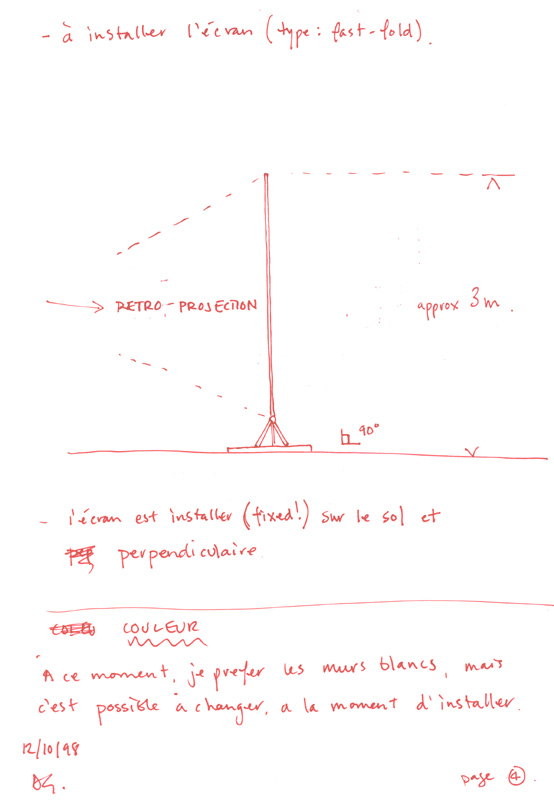 - à installer l'écran (type: fast-fold).
RETRO-PROJECTION
approx 3m.
90°
- l'écran est installer (fixed!) sur le sol et
perpendiculaire
COULEUR
A ce moment, je prefer les murs blancs, mais
c'est possible à changer, a la moment d'installer.
12/10/98
page 4